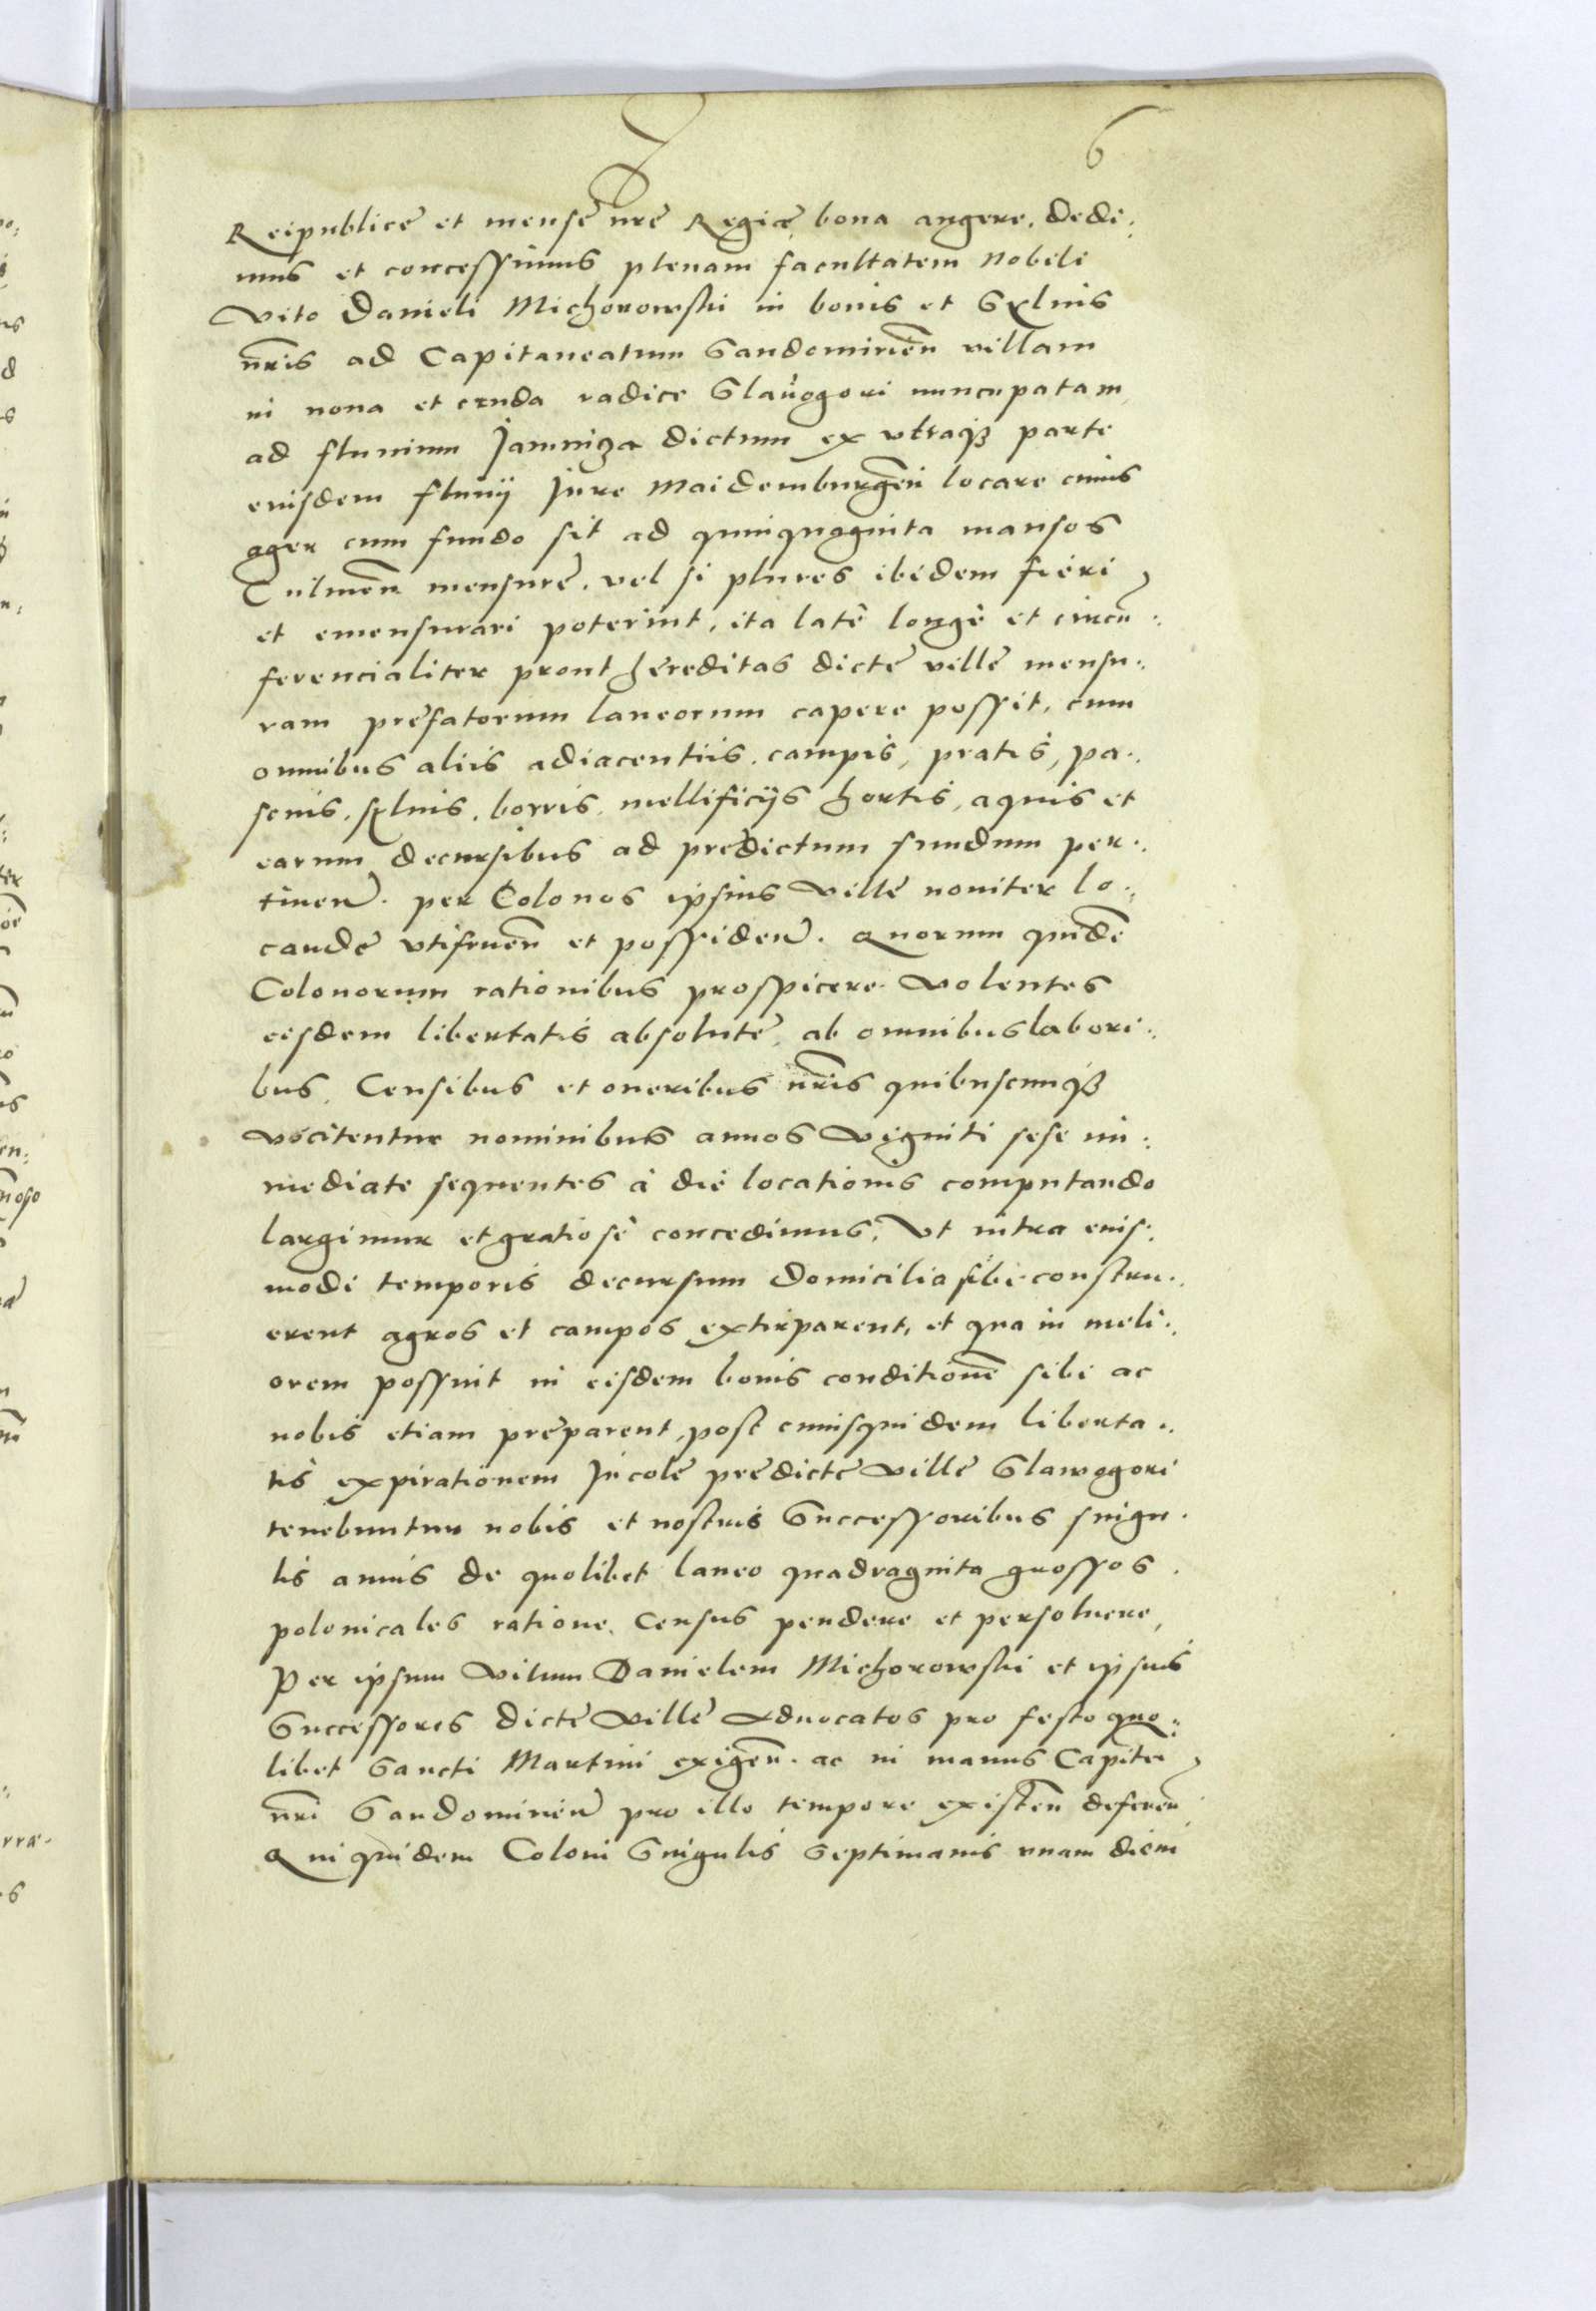 6
Reipublicę et mensę nrę Regiæ bona augere. dedi:
mus et concessimus plenam facultatem Nobili
Vito Danieli Michorowski in bonis et Syluis
nris ad Capitaneatum Sandomirien villam
in noua et cruda radice Slawogori nuncupatam
ad fluuium Jamniza dictum ex vtraqȝ parte
eiusdem fluuij Jure Maidemburgen locare cuius
ager cum fundo sit ad quinquaginta mansos
Culmen mensurę. vel si plures ibidem fieri
et emensurari poterint, ita latè longè et circu:
ferencialiter prout hęreditas dictę villę mensu:
ram pręfatorum laneorum capere possit, cum
omnibus aliis adiacentiis, campis, pratis, pa:
scuis, syluis, borris, mellificijs hortis, aquis et
earum decursibus ad prędictum fundum per:
tinen. per Colonos ipsius Villę nouiter lo:
candę vtifruen et possiden. Quorum quidē
Colonorum rationibus prospicere volentes
eisdem libertatis absolutę, ab omnibus labori:
bus, Censibus et oneribus nris quibuscunqȝ
vocitentur nominibus annos Viginti sese im:
mediate sequentes à die locationis computando
largimur et gratiosè concedimus, Vt intra eius:
modi temporis decursum Domicilia sibi constru:
erent agros et campos extirparent, et qua in meli:
orem possint in eisdem bonis conditionē sibi ac
nobis etiam pręparent, post cuiusquidem liberta:
tis expirationem Incolę prędictę Villę Slawogori
tenebuntur nobis et nostris Successoribus singu:
lis annis de quolibet laneo quadraginta grossos
polonicales ratione Census pendere et persoluere,
Per ipsum Vitum Danielem Michorowski et ipsius
Successores dictę Villę Aduocatos pro festo quo:
libet Sancti Martini exigen. ac in manus Capitei
nri Sandomirien pro illo tempore existen deferen
Qui quidem Coloni Singulis Septimanis vnam diem